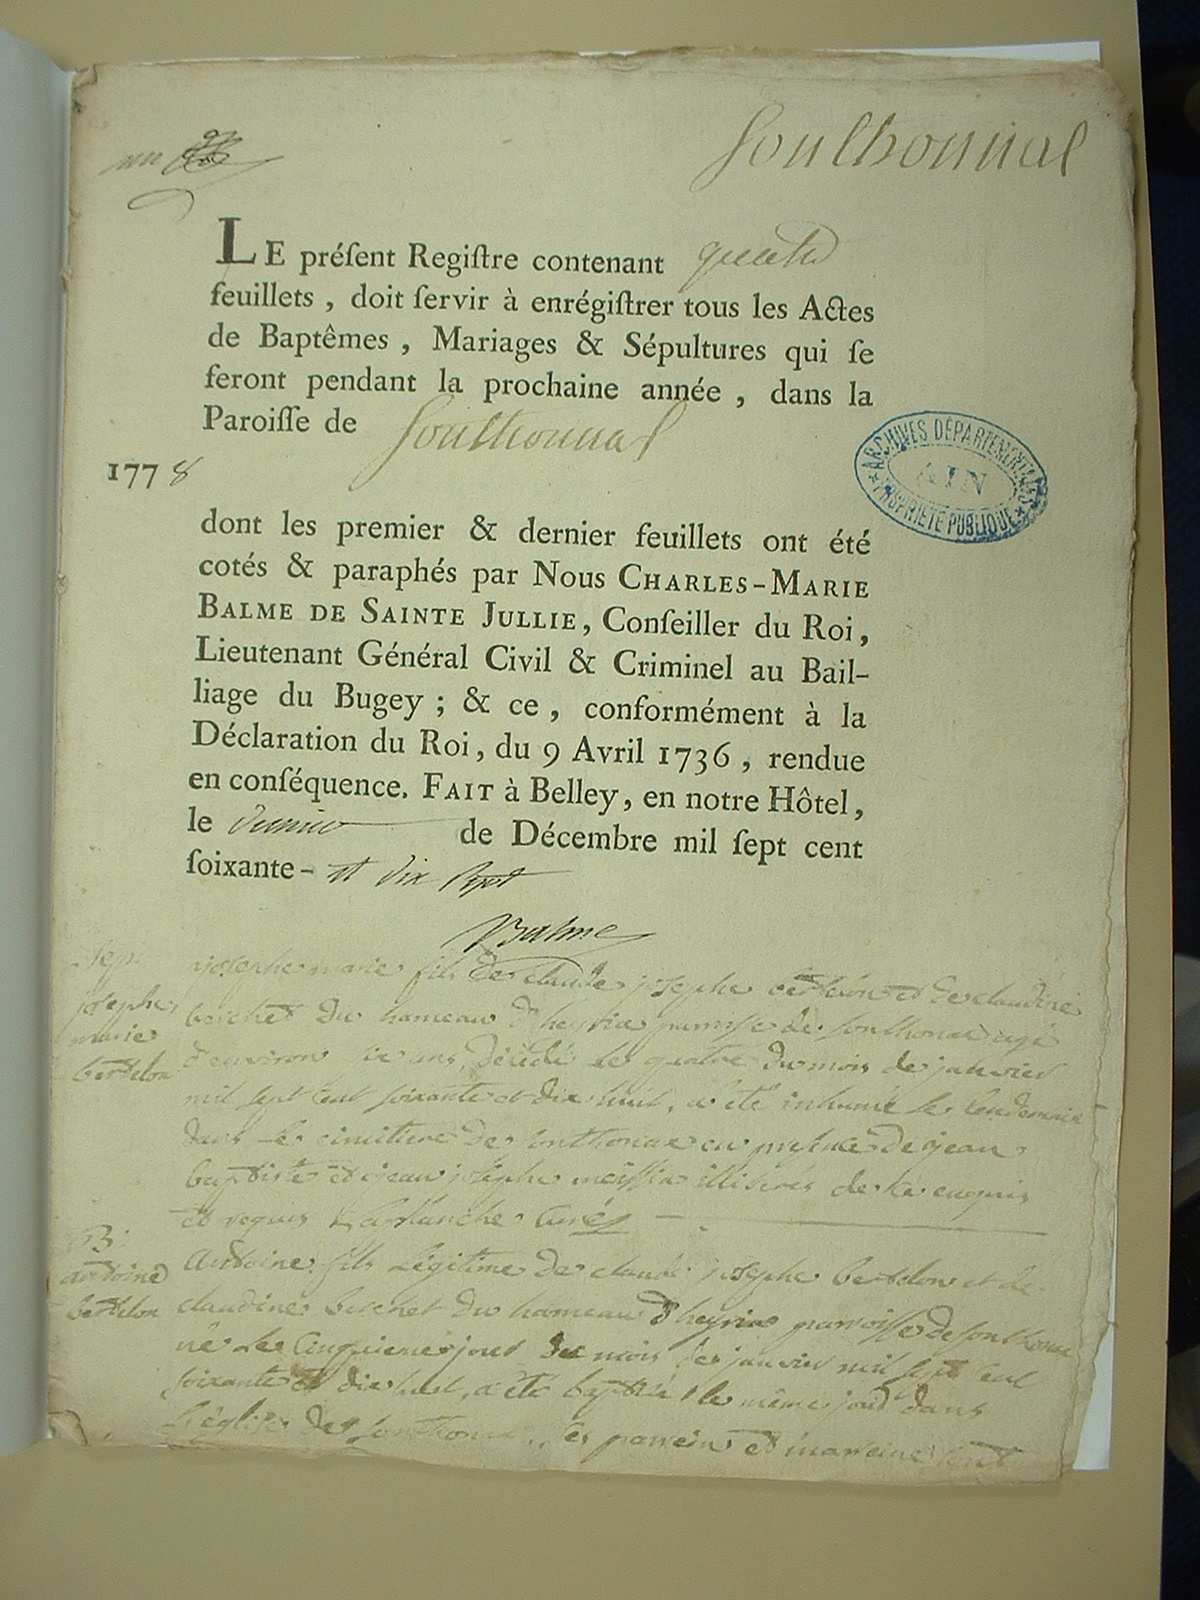 un
Sonthonnal
LE préſent Regiſtre contenant quatre
feuillets, doit ſervir à enrégiſtrer tous les Actes
de Baptêmes, Mariages & Sépultures qui ſe
feront pendant la prochaine année, dans la
Paroiſſe de Sonthonnal
1778
ARCHIVES DÉPARTEMENTALES
AIN
PROPRIÉTÉ PUBLIQUE
dont les premier & dernier feuillets ont été
cotés & paraphés par Nous CHARLES-MARIE
BALME DE SAINTE JULLIE, Conſeiller du Roi,
Lieutenant Général Civil & Criminel au Bail-
liage du Bugey; & ce, conformément à la
Déclaration du Roi, du 9 Avril 1736, rendue
en conſéquence. FAIT à Belley, en notre Hôtel,
le dernier de Décembre mil ſept cent
ſoixante- et dix sept
Balme
Sep:
josephe
marie
berthelon
josephe marie fils de claude josephe berthelon et de claudine
berchet du hameau d'heyria paroisse de sonthonax agé
d'environ six ans, décédé le quatre du mois de janvier
mil sept cent soixante et dix huit, a été inhumé le lendemain
dans le cimitiere de sonthonax en presence de jean
baptiste et jean josephe messia illiterés de ce enquis
et requis Blanche curé
B:
antoine
berthelon
Antoine fils légitime de claude josephe berthelon et de
claudine berchet du hameau d'heyria parroisse de sonthonax
né le cinquieme jour du mois de janvier mil sept cent
soixante et dix huit, a été baptisé le même jour dans
l'église de sonthonax, les parrein et marreine sont